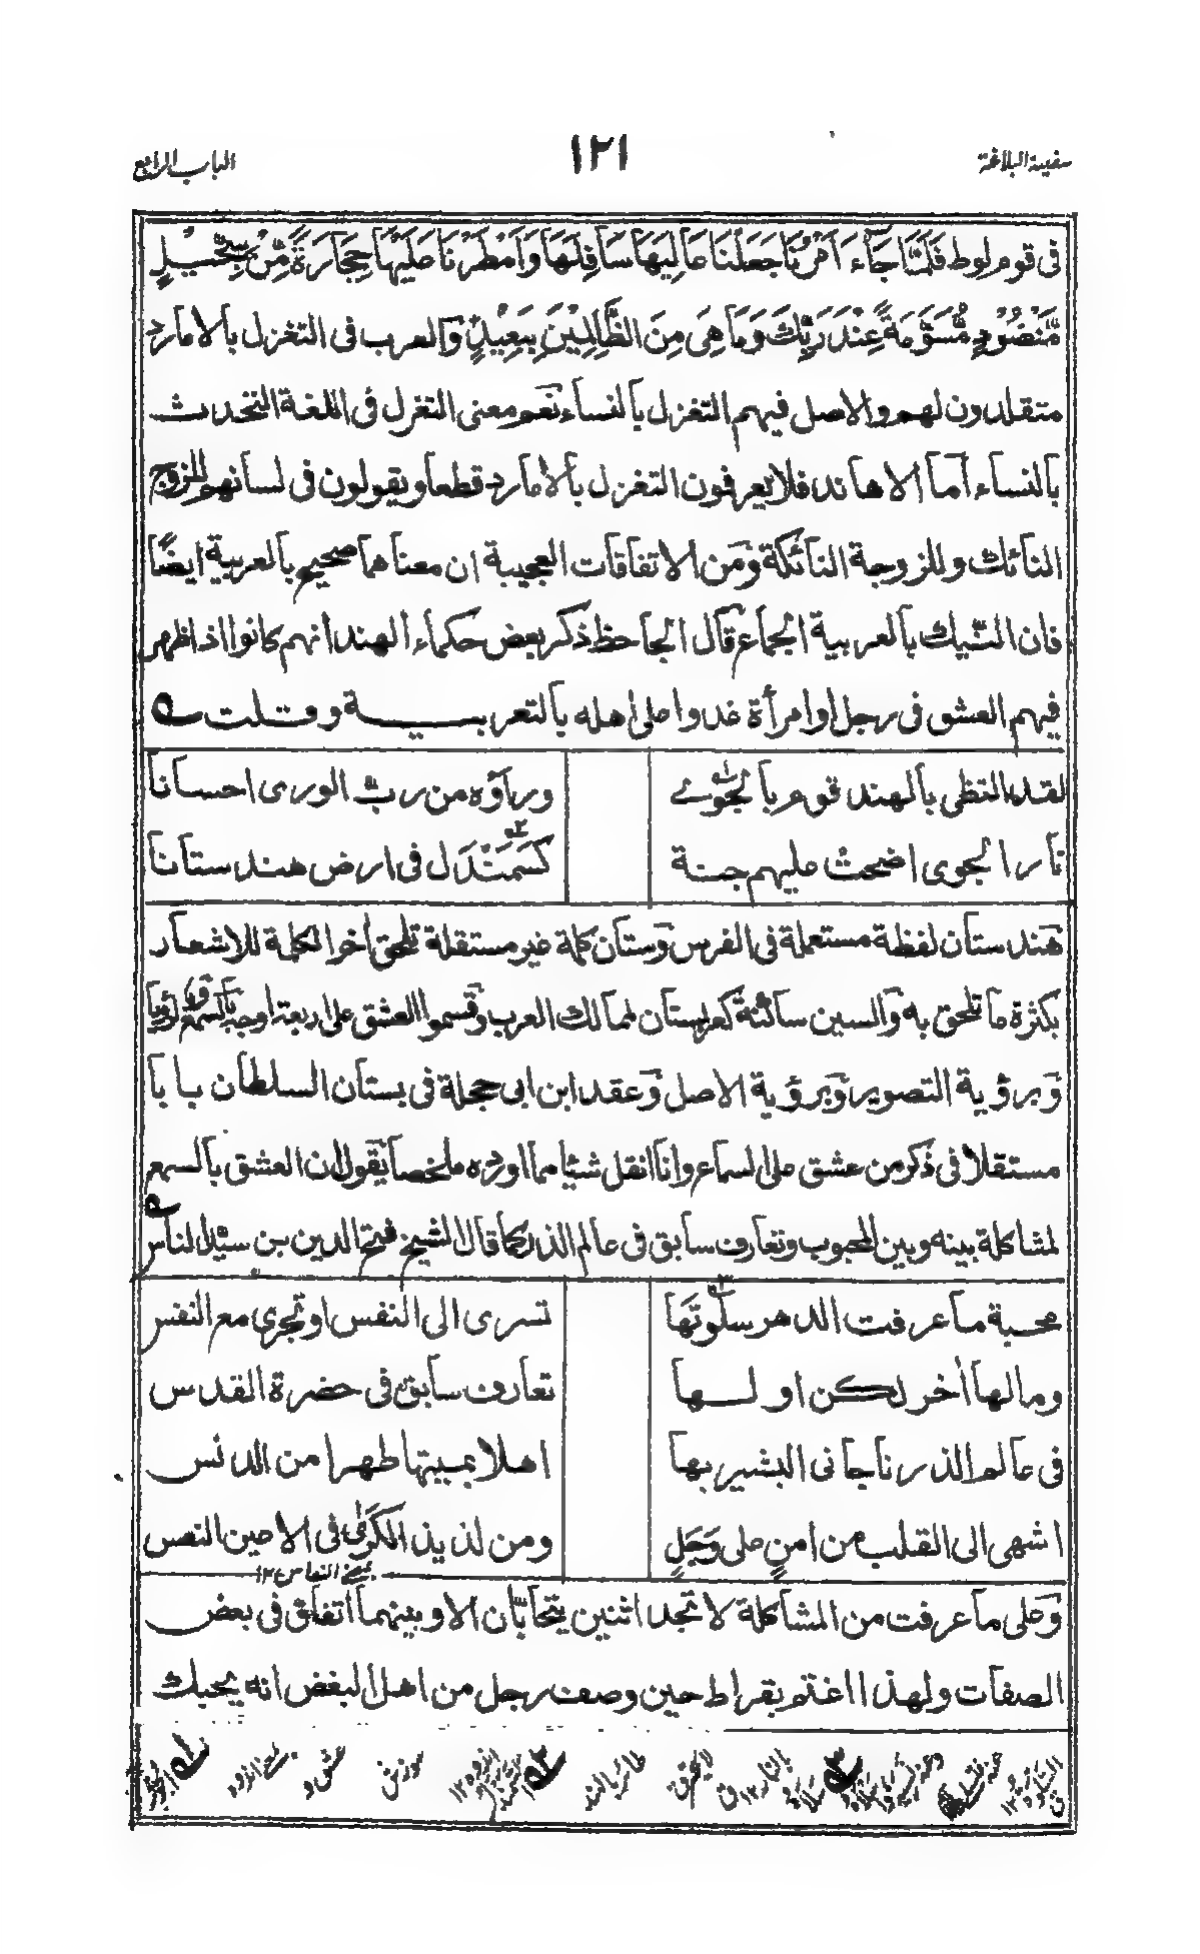 سفينة البلاغة
١٢١
الباب الرابع
فى قوم لوط فَلَمَّا جَآءَ اَمْرُنَا جَعَلْنَا عَالِيَهَا سَافِلَهَا وَاَمْطَرْنَا عَلَيْهَا حِجَارَةً مِّنْ سِجِّيْلٍ
مَّنْضُوْدٍ مُّسَوَّمَةً عِنْدَ رَبِّكَ وَمَا هِىَ مِنَ الظَّالِمِيْنَ بِبَعِيْدٍ والعرب فى التغزل بالامارد
متقلدون لهم والاصل فيهم التغزل بالنساء نعم معنى التغزل فى اللغة التحدث
بالنساء اما الاهاند فلا يعرفون التغزل بالامارد قطعا ويقولون فى لسانهم للزوج
النائك وللزوجة النائكة ومن الاتفاقات العجيبة ان معناهما صحيح بالعربية ايضًا
فان النيك بالعربية الجماع قال الجاحظ ذكر بعض حكماء الهند انهم كانوا اذا ظهر
فيهم العشق فى رجل او امرأة غدوا على اهله بالتعربيـــة وقلت
لقد التظى بالهند قوم بالجوٰے
ورأوه من ربّ الورى احسانا
نار الجوى اضحت عليهم جنة
كَسَمَنْدَل فى ارض هندستانا
هندستان لفظة مستعملة فى الفرس وستان كلمة غير مستقلة تلحق اخر الكلمة للاشعار
بكثرة ما تلحق به والسين ساكنة كعربستان لممالك العرب وقسموا العشق على اربعة اوجه بالسمع وبالرؤيا
وبرؤية التصوير وبرؤية الاصل وعقد ابن ابى حجلة فى بستان السلطان بابا
مستقلا فى ذكر من عشق على السماع وانا انقل شيئا مما اورده ملخصا يقول ان العشق بالسمع
لمشاكلة بينه وبين المحبوب وتعارف سابق فى عالم الذر كما قال الشيخ فتح الدين بن سيد الناس
محبة ما عرفت الدهر سلوتَهَا
تسرى الى النفس او تجرى مع النفس
وما لها اٰخر لكن اولـــها
تعارف سابق فى حضرة القدس
فى عالم الذر ناجانى البشير بها
اهلا بميتها طهرا من الدنس
اشهى الى القلب من امنٍ على وَجَلٍ
ومن لذيذ الكَرٰى فى الاعين النعس
وعلى ما عرفت من المشاكلة لا تجد اثنين يتحابّان الا وبينهما اتفاق فى بعض
الصفات ولهذا اغتم بقراط حين وصف رجل من اهل البغض انه يحبك